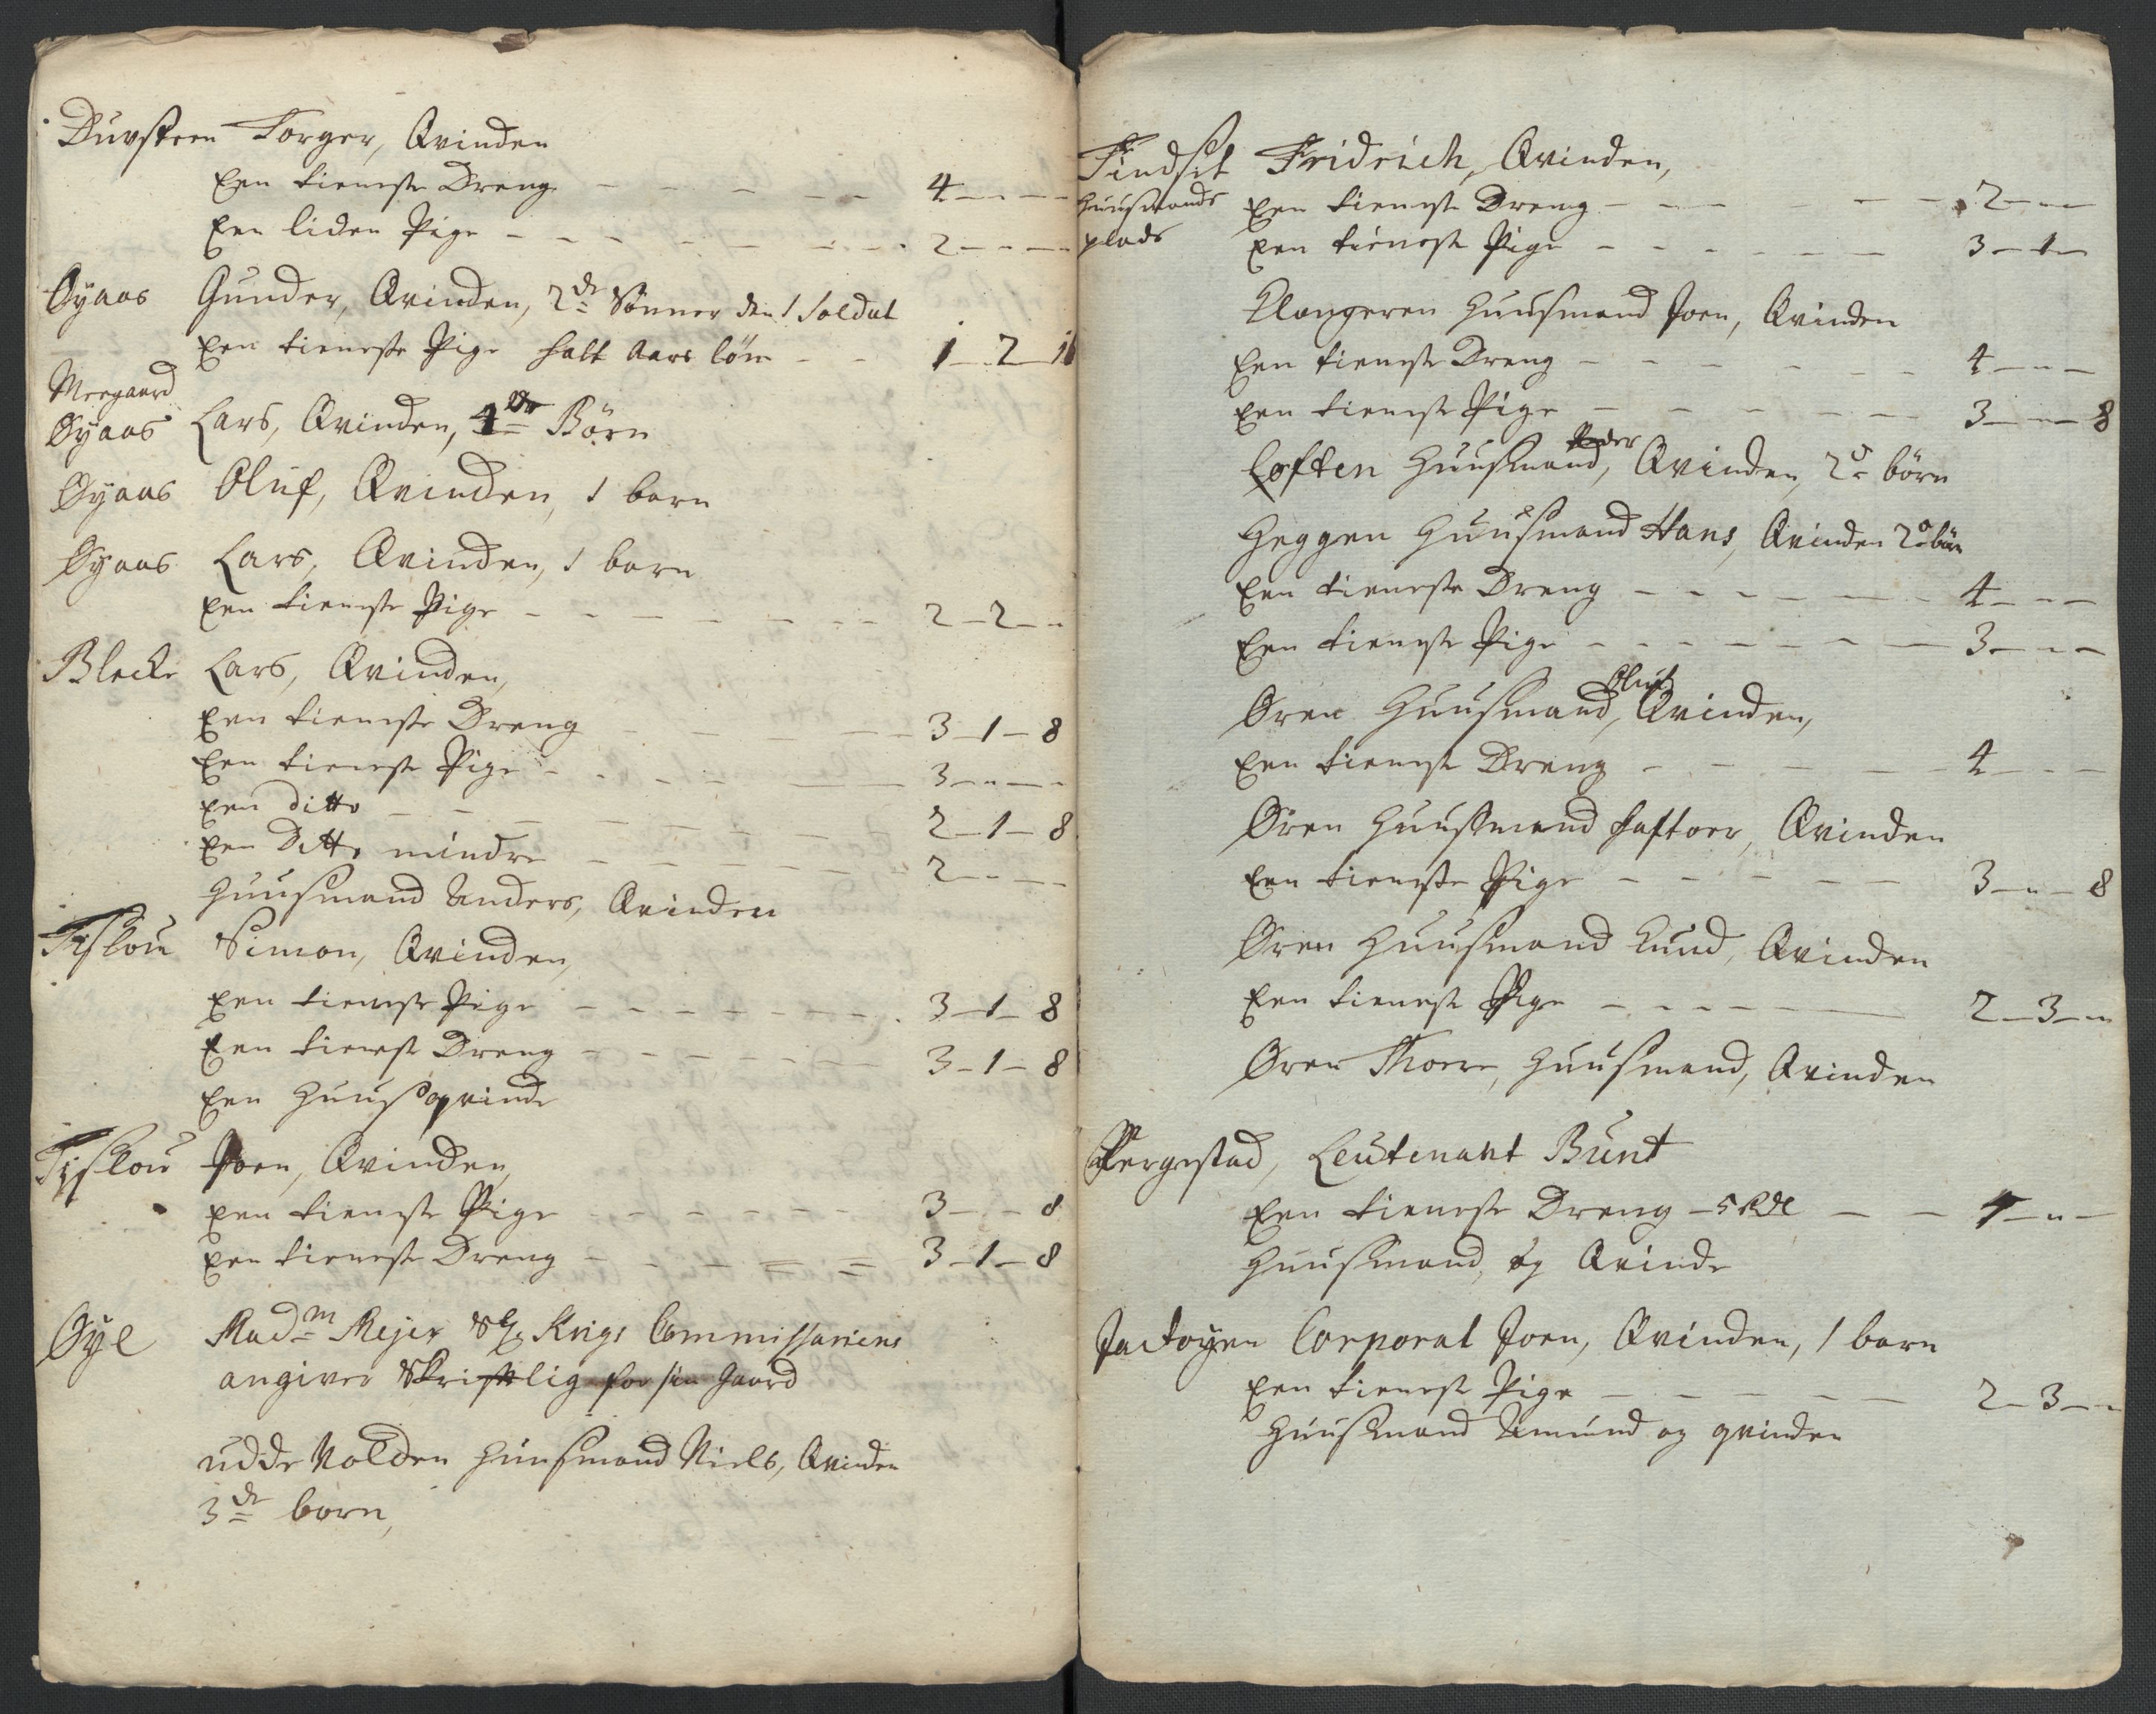 Duvsteen Torger, Qvinden
Een tieneste Dreng - - - - - 4 - - -
Een liden Pige - - - - - - 2 - - -
Øyaas Gunder, Qvinden, 2de Sønner den 1 Soldat
Een tieneste Pige halt Aars løn - - 1 - 2 - 16
Moegaard
Øyaas Lars, Qvinden, 4de Børn
Øyaas Oluf, Qvinden, 1 barn
Øyaas Lars, Qvinden, 1 barn
Een tieneste Pige - - - - - - 2 - 2 - -
Blecke Lars, Qvinden,
Een tieneste Dreng - - - - - 3 - 1 - 8
Een tieneste Pige - - - - - 3 - - -
Een ditto - - - - - - 2 - 1 - 8
Een Ditto mindre - - - - - 2 - - -
Huusmand Anders, Qvinden
Tislou Simon, Qvinden,
Een tieneste Pige - - - - - - 3 - 1 - 8
Een tieneste Dreng - - - - - - 3 - 1 - 8
Een Huusqvinde
Tislou Joen, Qvinden,
Een tieneste Pige - - - - - - 3 - - 8
Een tieneste Dreng - - - - - 3 - 1 - 8
Øye Madm Mejer Krigs Commissariens
angiver Skriftlig for sin Gaard
udde Volden Huusmand Niels, Qvinden
3de børn,
Findset Fridrich, Qvinden,
Huusmands Een tieneste Dreng - - - - - 2 - - -
plads Een tieneste Pige - - - - - - 3 - 1 -
Klangeren Huusmand Joen, Qvinden
Een tieneste Dreng - - - - - - 4 - - -
Een tieneste Pige - - - - - - 3 - - 8
Peder
Loften Huusmand, Qvinden, 2de børn
Heggen Huusmand Hans, Qvinden 2de børn
Een tieneste Dreng - - - - - - 4 - - -
Een tieneste Pige - - - - - - 3 - - -
Oluf
Øren Huusmand, Qvinden,
Een tieneste Dreng - - - - - 4 - - -
Øren Huusmand Haftoer, Qvinden
Een tieneste Pige - - - - - 3 - - 8
Øren Huusmand Knud, Qvinden
Een tieneste Pige - - - - - 2 - 3 - -
Øren Thore, Huusmand, Qvinden
Bergestad, Leutenant Bunt
Een tieneste Dreng - 5 Rdl - - 4 - - -
Huusmand, og Qvinde
Jacktøyen Corporal Joen, Qvinden, 1 barn
Een tieneste Pige - - - - - 2 - 3 - -
Huusmand Amund og qvinden